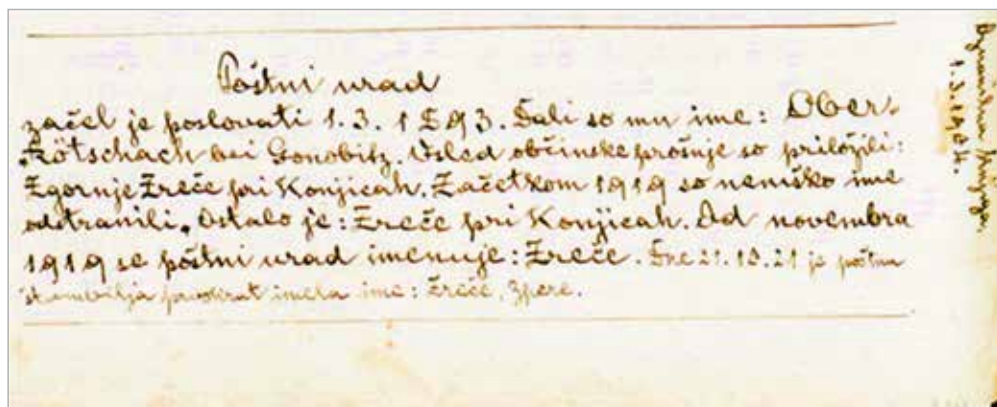 Poštni urad
začel je poslovati 1.3.1893. Dali so mu ime: Ober-
Rötschach bei Gonobitz. Vsled občinske prošnje so priložili:
Zgornje Zreče pri Konjicah. Začetkom 1919 so nemško ime
odstranili. Ostalo je: Zreče pri Konjicah. Od novembra
1919 se poštni urad imenuje: Zreče. Dne 21.12.21 je poštna
štambilja prvokrat imela ime: Zreče,